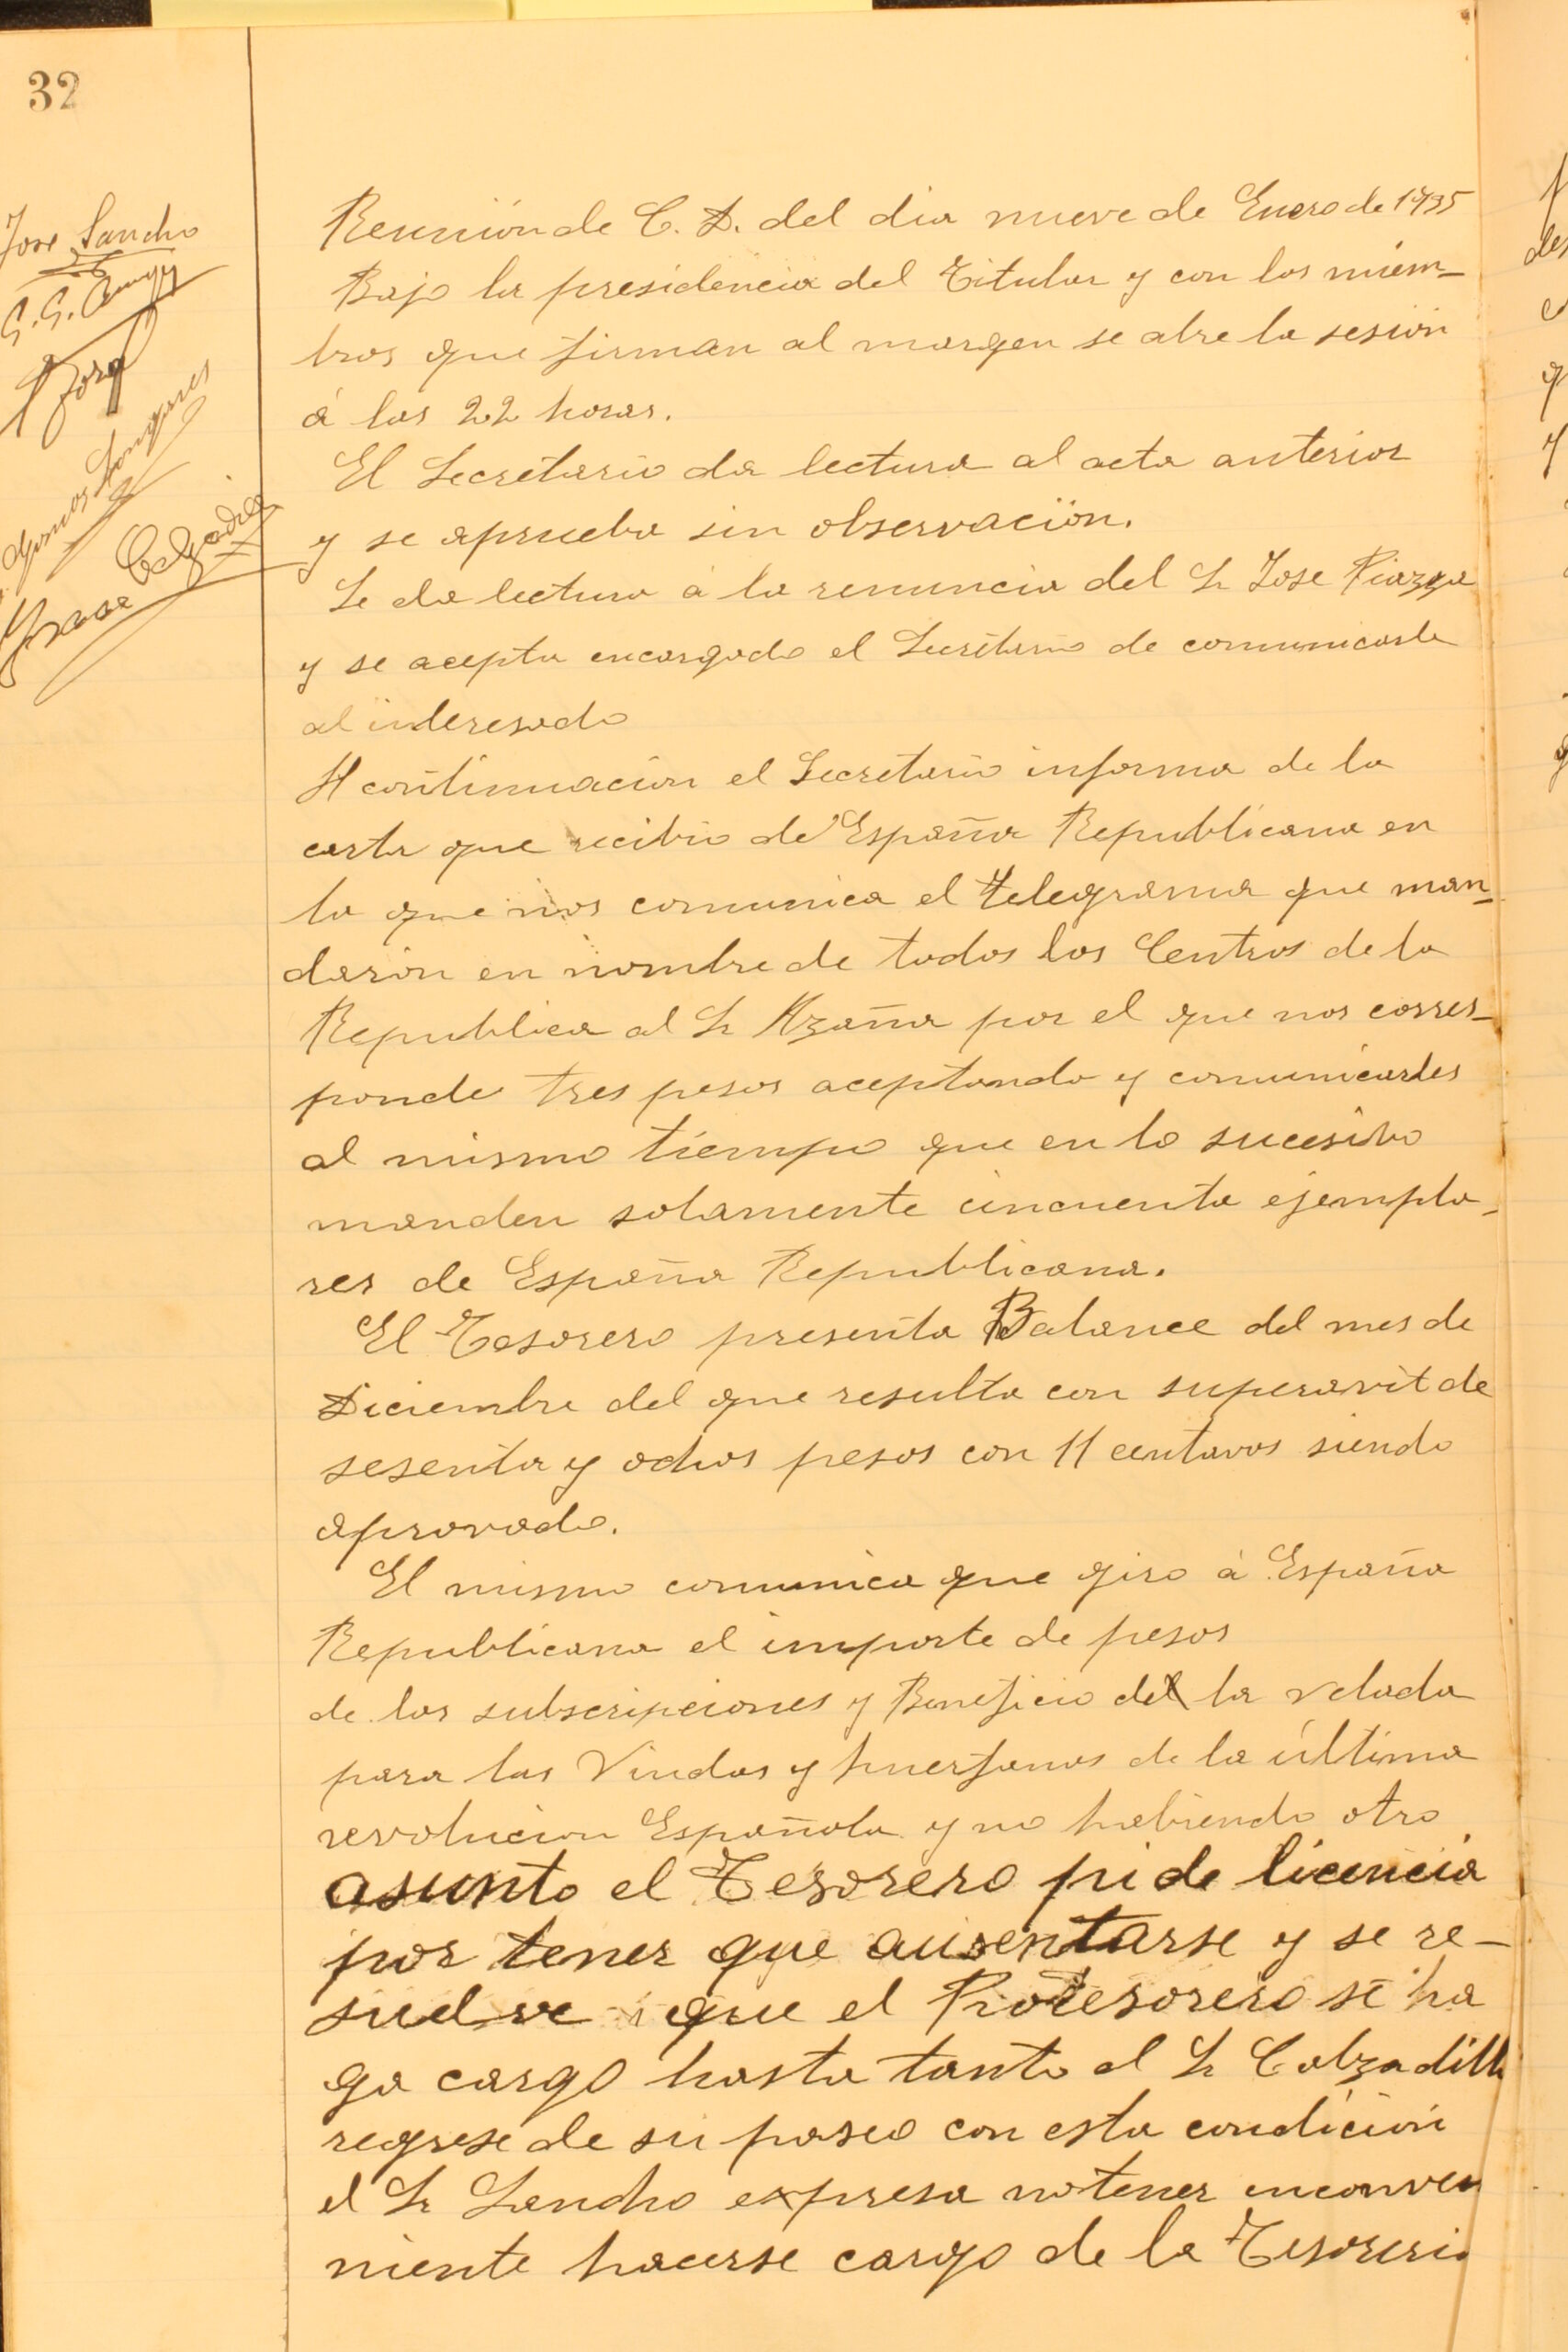 32
Jose Sancho
Reunión de C. D. del dia nueve de Enero de 1935
Bajo la presidencia del Titular y con los miem-
bros que firman al margen se abre la sesión
á las 22 horas.
El Secretario da lectura al acta anterior
y se aprueba sin observación.
Se da lectura á la renuncia del Sr Jose Piazza
y se acepta encargado el Secretario de comunicarle
al interesado
A continuación el Secretario informa de la
carta que recibio de España Republicana en
la que nos comunica el telegrama que man-
darón en nombre de todos los Centros de la
Republica al Sr Azaña por el que nos corres-
ponde tres pesos aceptando y comunicarles
al mismo tiempo que en lo sucesibo
manden solamente cincuenta ejempla-
res de España Republicana.
El Tesorero presenta Balance del mes de
Diciembre del que resulta con superavit de
sesenta y ochos pesos con 11 centavos siendo
aprovado.
El mismo comunica que giro á España
Republicana el importe de pesos
de las subscripciones y Beneficio del la velada
para las Viudas y huerfanos de la última
revolucion Española y no habiendo otro
asunto el Tesorero pide licencia
por tener que ausentarse y se re-
suelve que el Protesorero se ha
ga cargo hasta tanto el Sr Calzadilla
regrese de su paseo con esta condición
el Sr Sancho expresa no tener inconve
niente hacerse cargo de la Tesoreria